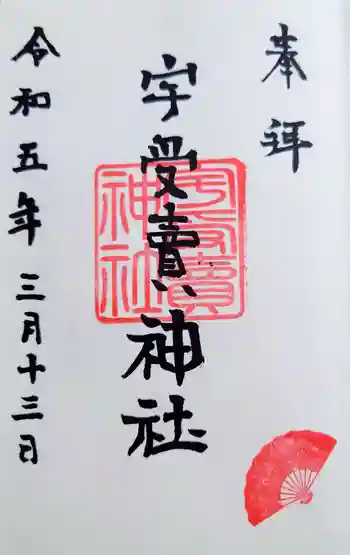 奉拝
宇受賣神社
宇受賣
神社
令和五年 三月十三日